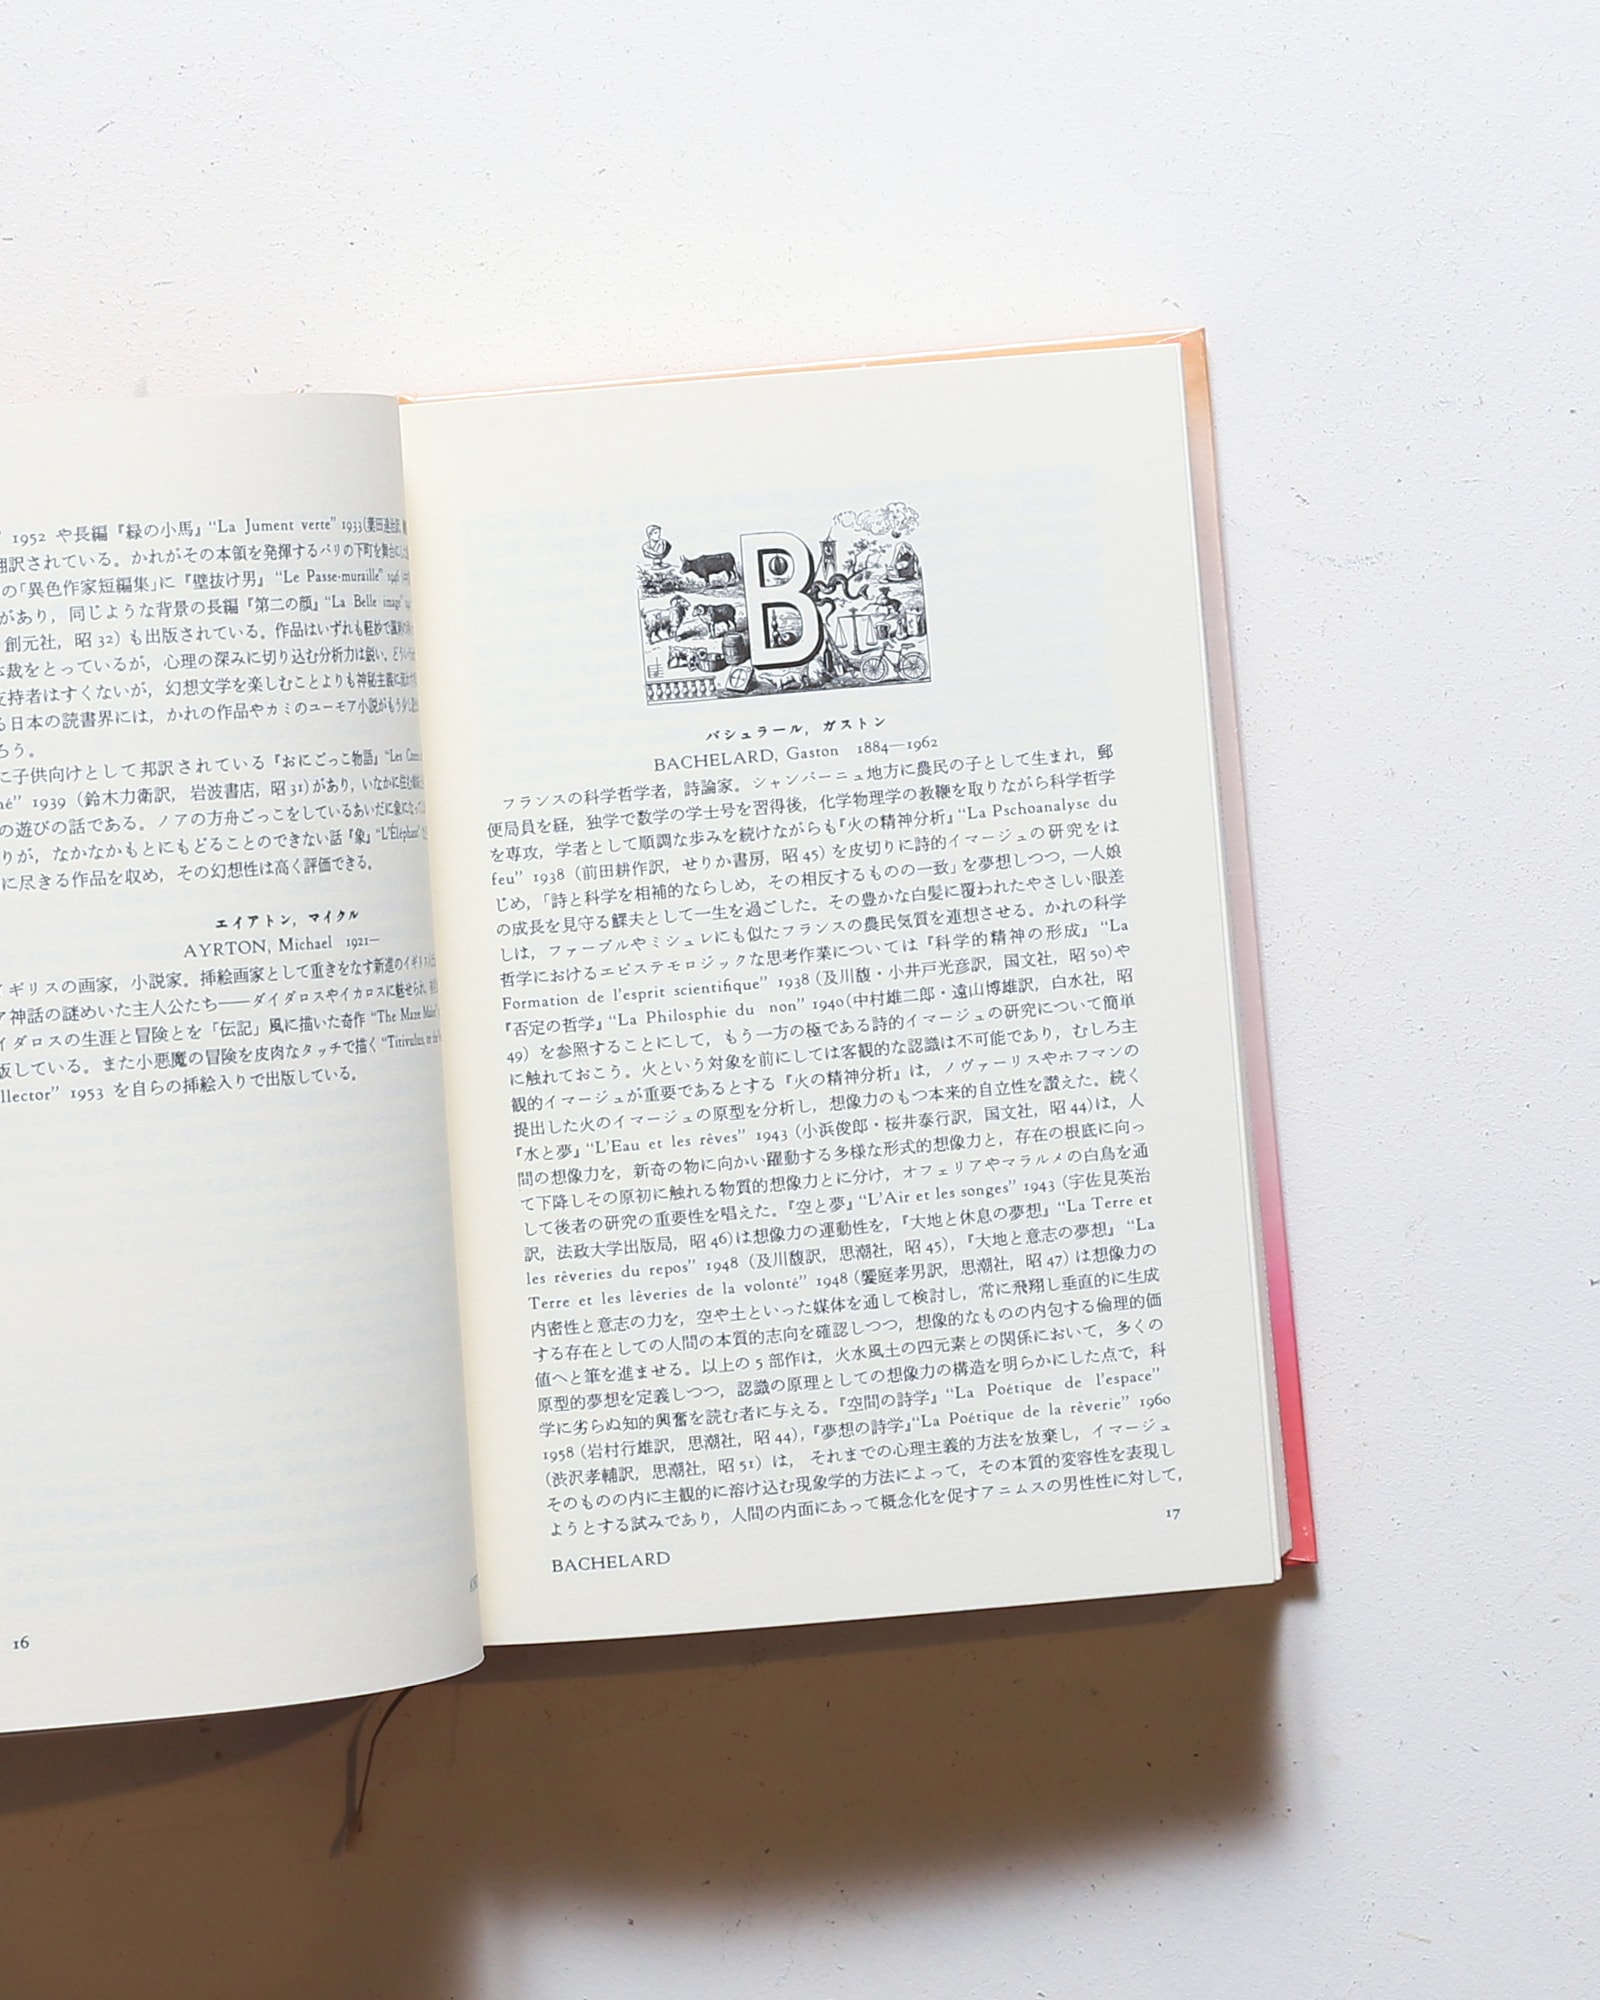 1952 や長編『緑の小馬』“La Jument verte” 1933
翻訳されている。かれがその本領を発揮するパリの下町を舞台に
の「異色作家短編集」に『壁抜け男』“Le Passe-muraille”
があり，同じような背景の長編『第二の顔』“La Belle image”
創元社，昭 32）も出版されている。作品はいずれも軽妙で
裁をとっているが，心理の深みに切り込む分析力は鋭い。
支持者はすくないが，幻想文学を楽しむことよりも神秘主義に
る日本の読書界には，かれの作品やカミのユーモア小説がもう少し
ろう。
に子供向けとして邦訳されている『おにごっこ物語』“Les
1939（鈴木力衛訳，岩波書店，昭 31）があり，いなかに住む
の遊びの話である。ノアの方舟ごっこをしているあいだに象になって
りが，なかなかもとにもどることのできない話『象』“L'Éléphant”
に尽きる作品を収め，その幻想性は高く評価できる。
エイアトン，マイクル
AYRTON, Michael 1921—
イギリスの画家，小説家。挿絵画家として重きをなす新進のイギリス
ア神話の謎めいた主人公たち——ダイダロスやイカロスに魅せられ，
イダロスの生涯と冒険とを「伝記」風に描いた奇作“The Maze Maker”
版している。また小悪魔の冒険を皮肉なタッチで描く“Titivulus, or the
llector” 1953 を自らの挿絵入りで出版している。
16
B
バシュラール，ガストン
BACHELARD, Gaston 1884—1962
フランスの科学哲学者，詩論家。シャンパーニュ地方に農民の子として生まれ，郵
便局員を経，独学で数学の学士号を習得後，化学物理学の教鞭を取りながら科学哲学
を専攻，学者として順調な歩みを続けながらも『火の精神分析』“La Pschoanalyse du
feu” 1938（前田耕作訳，せりか書房，昭 45）を皮切りに詩的イマージュの研究をは
じめ，「詩と科学を相補的ならしめ，その相反するものの一致」を夢想しつつ，一人娘
の成長を見守る鰥夫として一生を過ごした。その豊かな白髪に覆われたやさしい眼差
しは，ファーブルやミシュレにも似たフランスの農民気質を連想させる。かれの科学
哲学におけるエピステモロジックな思考作業については『科学的精神の形成』“La
Formation de l'esprit scientifique” 1938（及川馥・小井戸光彦訳，国文社，昭 50）や
『否定の哲学』“La Philosphie du non” 1940（中村雄二郎・遠山博雄訳，白水社，昭
49）を参照することにして，もう一方の極である詩的イマージュの研究について簡単
に触れておこう。火という対象を前にしては客観的な認識は不可能であり，むしろ主
観的イマージュが重要であるとする『火の精神分析』は，ノヴァーリスやホフマンの
提出した火のイマージュの原型を分析し，想像力のもつ本来的自立性を讃えた。続く
『水と夢』“L'Eau et les rêves” 1943（小浜俊郎・桜井泰行訳，国文社，昭 44）は，人
間の想像力を，新奇の物に向かい躍動する多様な形式的想像力と，存在の根底に向っ
て下降しその原初に触れる物質的想像力とに分け，オフェリアやマラルメの白鳥を通
して後者の研究の重要性を唱えた。『空と夢』“L'Air et les songes” 1943（宇佐見英治
訳，法政大学出版局，昭 46）は想像力の運動性を，『大地と休息の夢想』“La Terre et
les rêveries du repos” 1948（及川馥訳，思潮社，昭 45），『大地と意志の夢想』“La
Terre et les lêveries de la volonté” 1948（饗庭孝男訳，思潮社，昭 47）は想像力の
内密性と意志の力を，空や土といった媒体を通して検討し，常に飛翔し垂直的に生成
する存在としての人間の本質的志向を確認しつつ，想像的なものの内包する倫理的価
値へと筆を進ませる。以上の 5 部作は，火水風土の四元素との関係において，多くの
原型的夢想を定義しつつ，認識の原理としての想像力の構造を明らかにした点で，科
学に劣らぬ知的興奮を読む者に与える。『空間の詩学』“La Poétique de l'espace”
1958（岩村行雄訳，思潮社，昭 44），『夢想の詩学』“La Poétique de la rêverie” 1960
（渋沢孝輔訳，思潮社，昭 51）は，それまでの心理主義的方法を放棄し，イマージュ
そのものの内に主観的に溶け込む現象学的方法によって，その本質的変容性を表現し
ようとする試みであり，人間の内面にあって概念化を促すアニムスの男性性に対して，
BACHELARD
17